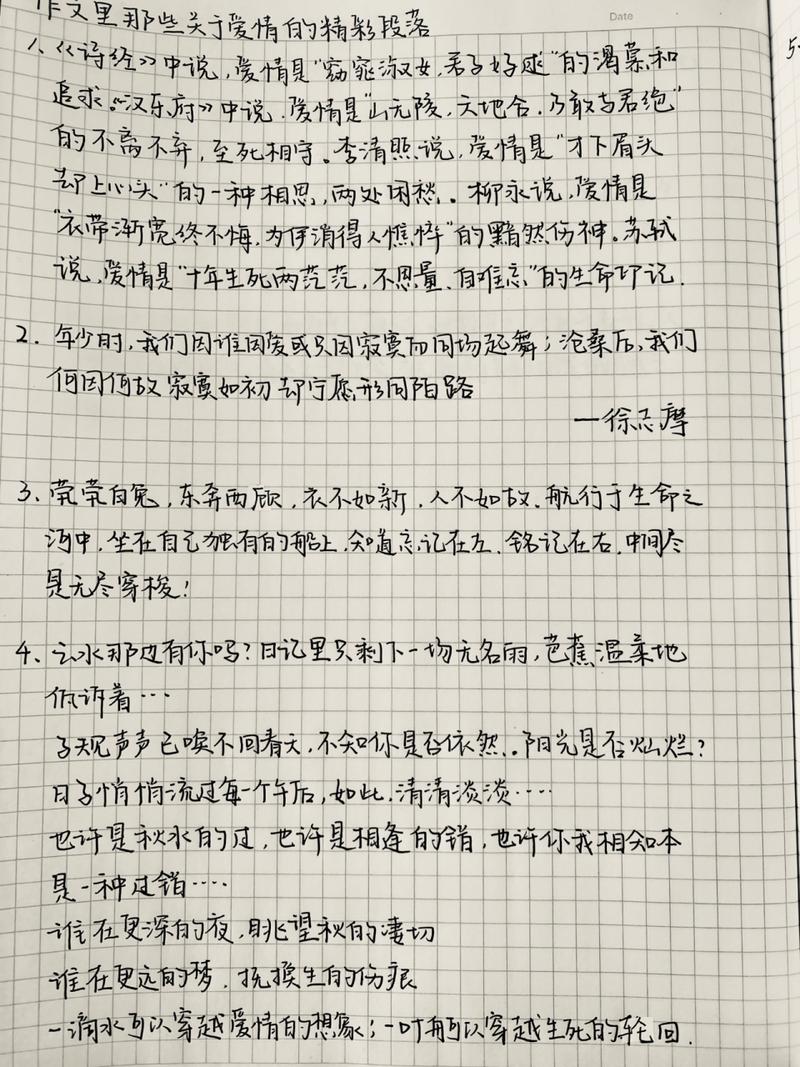 作文里那些关于爱情的精彩段落
Date
1、《诗经》中说,爱情是“窈窕淑女,君子好逑”的渴慕和
追求。《汉乐府》中说,爱情是“山无陵,天地合,乃敢与君绝”
的不离不弃,至死相守。李清照说,爱情是“才下眉头
却上心头”的一种相思,两处闲愁。柳永说,爱情是
“衣带渐宽终不悔,为伊消得人憔悴”的黯然伤神。苏轼
说,爱情是“十年生死两茫茫,不思量、自难忘”的生命印记.
2. 年少时,我们因谁因爱或只因寂寞而同场起舞;沧桑后,我们
何因何故寂寞如初却宁愿形同陌路
—徐志摩
3、茕茕白兔,东奔西顾,衣不如新,人不如故.航行于生命之
河中,坐在自己独有的船上,知道忘记在左、铭记在右,中间尽
是无尽穿梭!
4、云水那边有你吗?日记里只剩下一场无名雨,芭蕉温柔地
低诉着…
子规声声已唤不回春天,不知你是否依然.阳光是否灿烂?
日子悄悄流过每一个午后,如此.清清淡淡……
也许是秋水的过,也许是相逢的错,也许你我相知本
是一种过错……
谁在更深的夜,眺望秋的凄切
谁在更远的梦.抚摸生的伤痕
一滴水可以穿越爱情的想象;一叶舟可以穿越生死的轮回.
5.